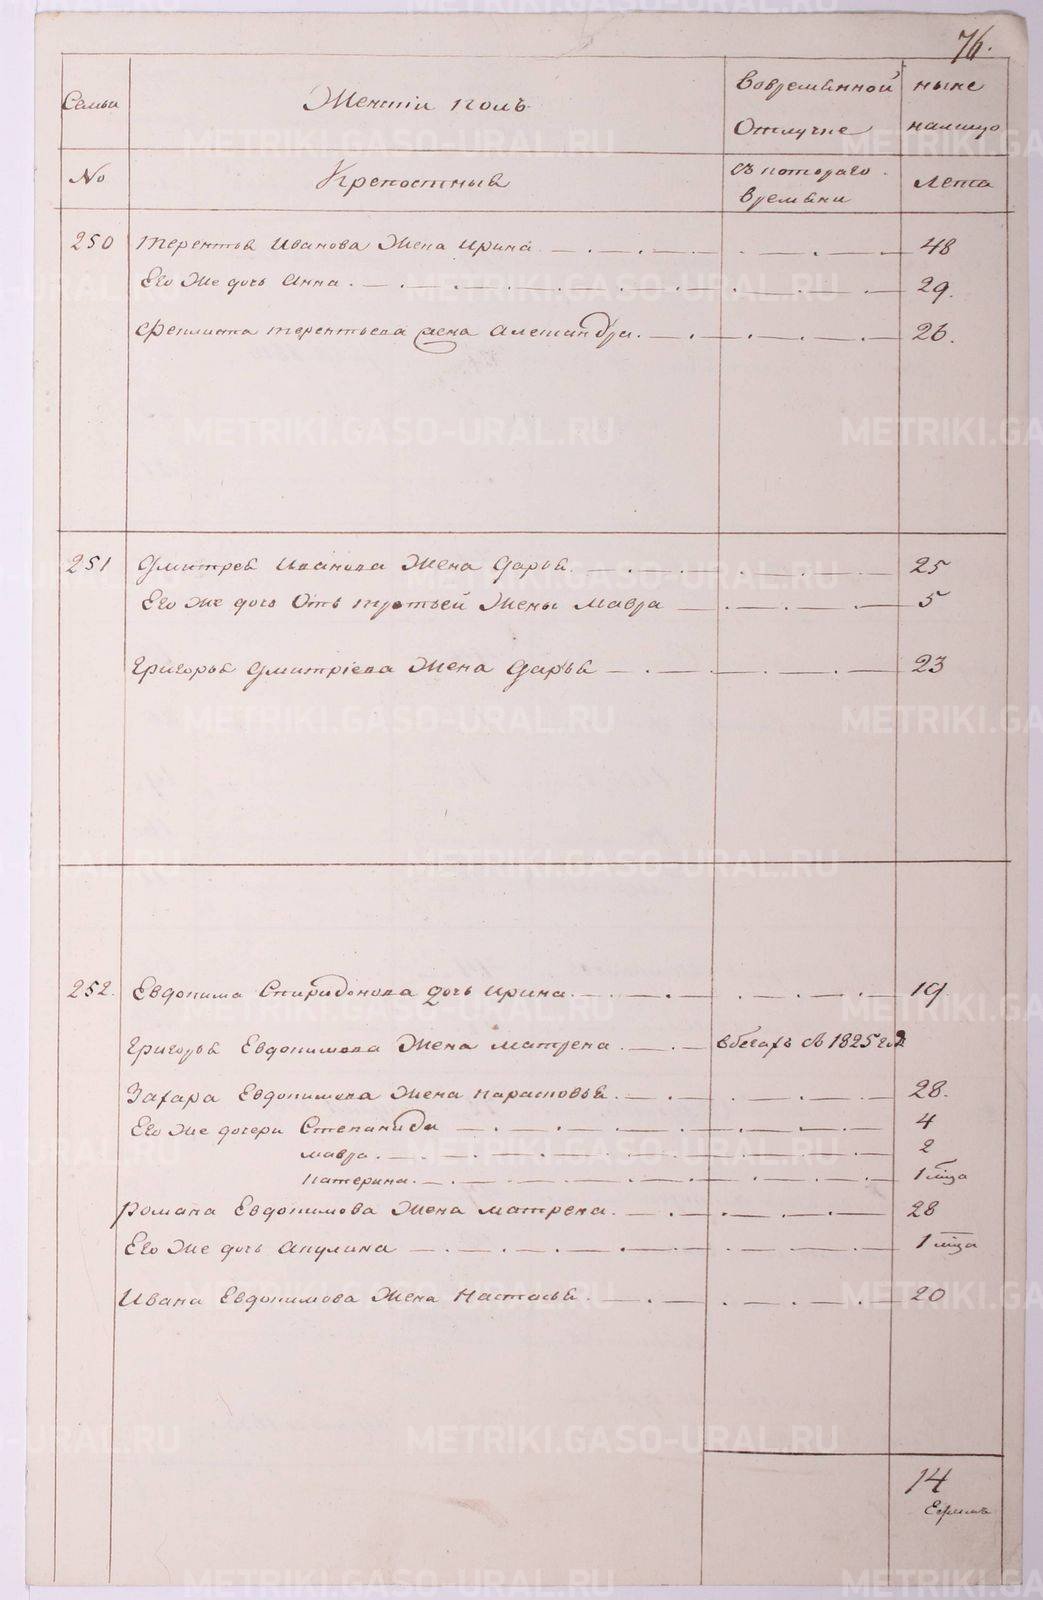 76.
Семьи Женскiй полъ Вовременной ныне
Отлучке налицо
№ Крепостныя съ котораго Лета
времени
250 Терентья Иванова Жена Ирина 48
Его Же дочь Анна 29.
Феклиста Терентьева жена Александра. 26.
251 Дмитрея Иванова Жена Дарья 25
Его Же дочь Отъ третьей Жены Мавра 5
Григорья Дмитрiева Жена Дарья 23
252. Евдокима Спиридонова дочь Ирина 19
Григорья Евдокимова Жена Матрена вбегахъ съ 1825 го
Захара Евдокимова Жена Парасковья 28.
Его Же дочери Степанида 4
Мавра 2
Катерина 1 м҃ца
Романа Евдокимова Жена Матрена 28
Его Же дочь Акулина 1 м҃ца
Ивана Евдокимова Жена Настасья 20
14
METRIKI.GASO-URAL.RU